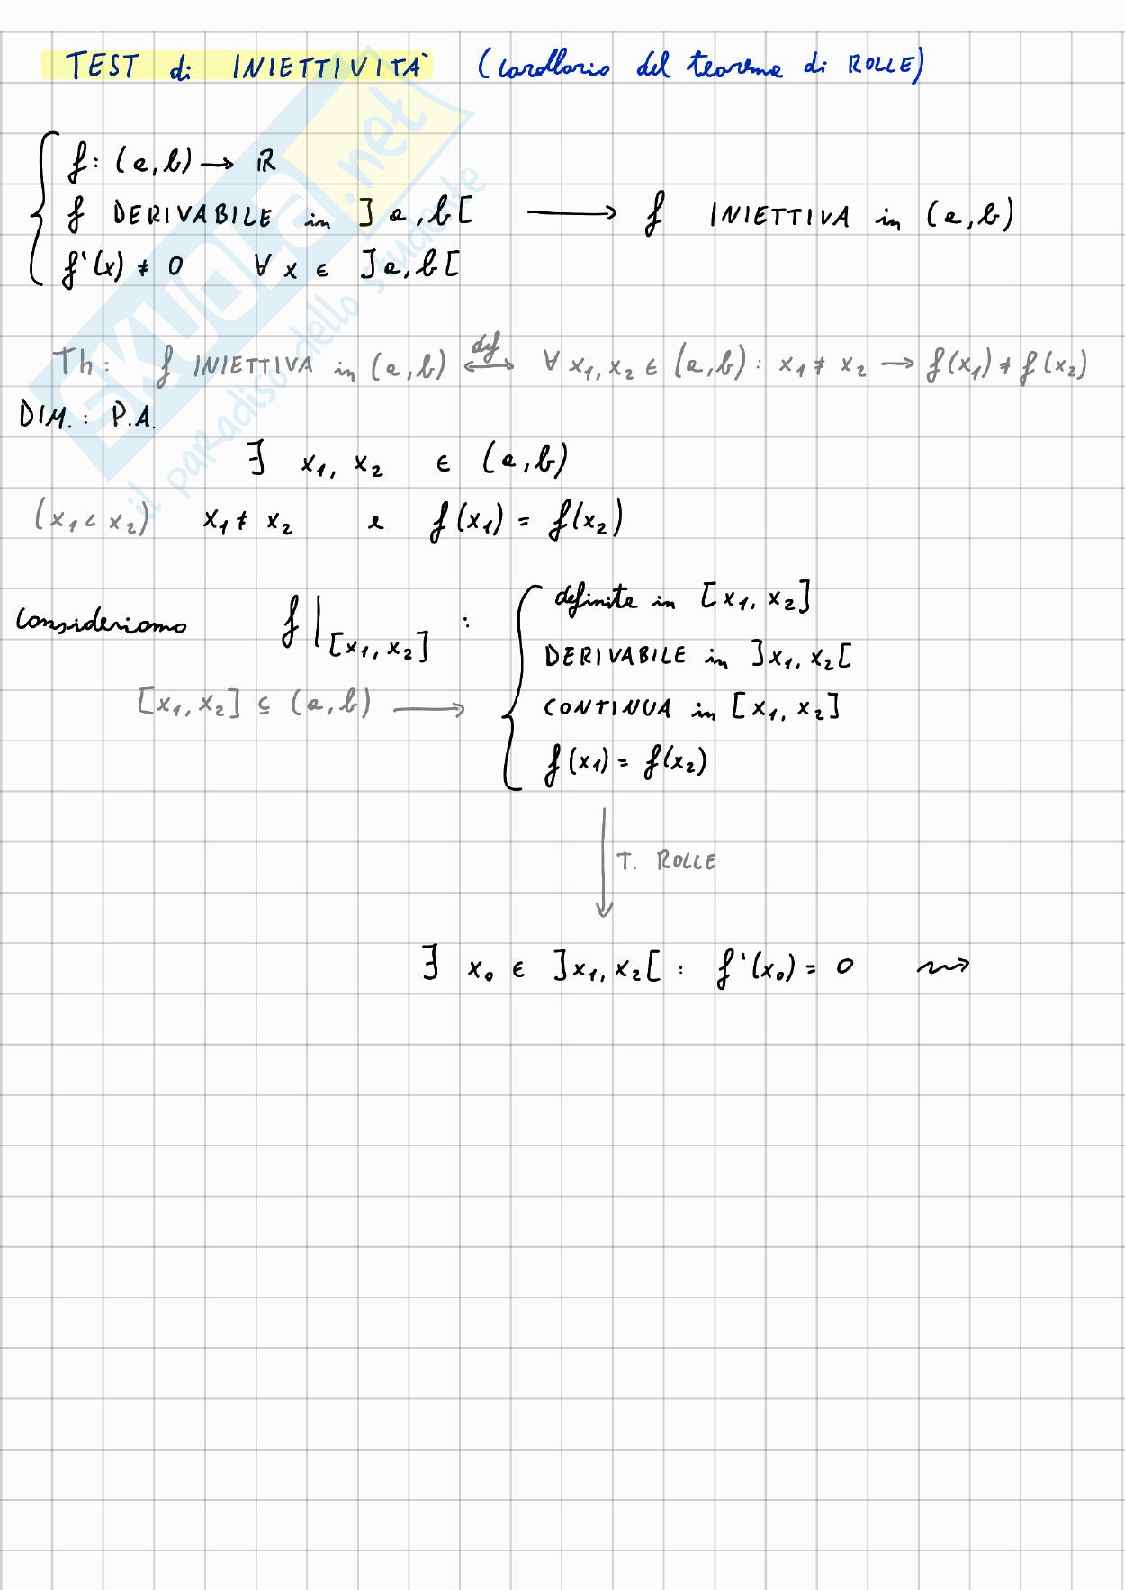 TEST di INIETTIVITÀ (corollario del teorema di ROLLE)
f: (a,b) → ℝ
f DERIVABILE in ]a,b[ ⟶ f INIETTIVA in (a,b)
f'(x) ≠ 0 ∀ x ∈ ]a,b[
Th: f INIETTIVA in (a,b) ⟷ def ∀ x₁, x₂ ∈ (a,b) : x₁ ≠ x₂ → f(x₁) ≠ f(x₂)
DIM.: P.A.
∃ x₁, x₂ ∈ (a,b)
(x₁ < x₂) x₁ ≠ x₂ e f(x₁) = f(x₂)
definita in [x₁, x₂]
Consideriamo f|[x₁, x₂] :
DERIVABILE in ]x₁, x₂[
[x₁, x₂] ⊆ (a,b) ⟶ CONTINUA in [x₁, x₂]
f(x₁) = f(x₂)
T. ROLLE
∃ x₀ ∈ ]x₁, x₂[ : f'(x₀) = 0 ⇝
SKUOLA.net
il paradiso dello studente